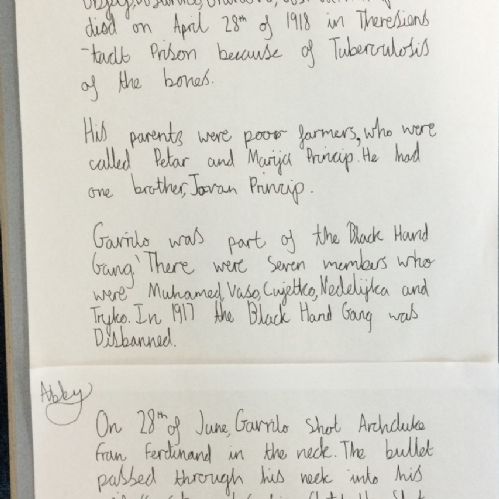 died on April 28th of 1918 in Theresiens
-tadt Prison because of Tuberculosis
of the bones.
His parents were poor farmers, who were
called Petar and Marija Princip. He had
one brother, Jovan Prinzip.
Gavrilo was part of the 'Black Hand
Gang' There were seven members who
were Muhamed, Vaso, Cvjetko, Nedeljko and
Tryko. In 1917 the Black Hand Gang was
Disbanned.
Abby
On 28th of June, Gavrilo Shot Archduke
Fran Ferdinand in the neck. The bullet
passed through his neck into his